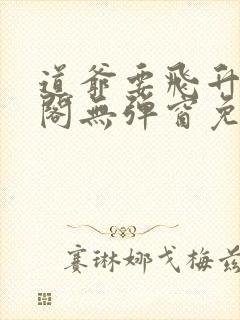 道爺要飛升
閣無彈窗免
賽琳娜戈梅茲